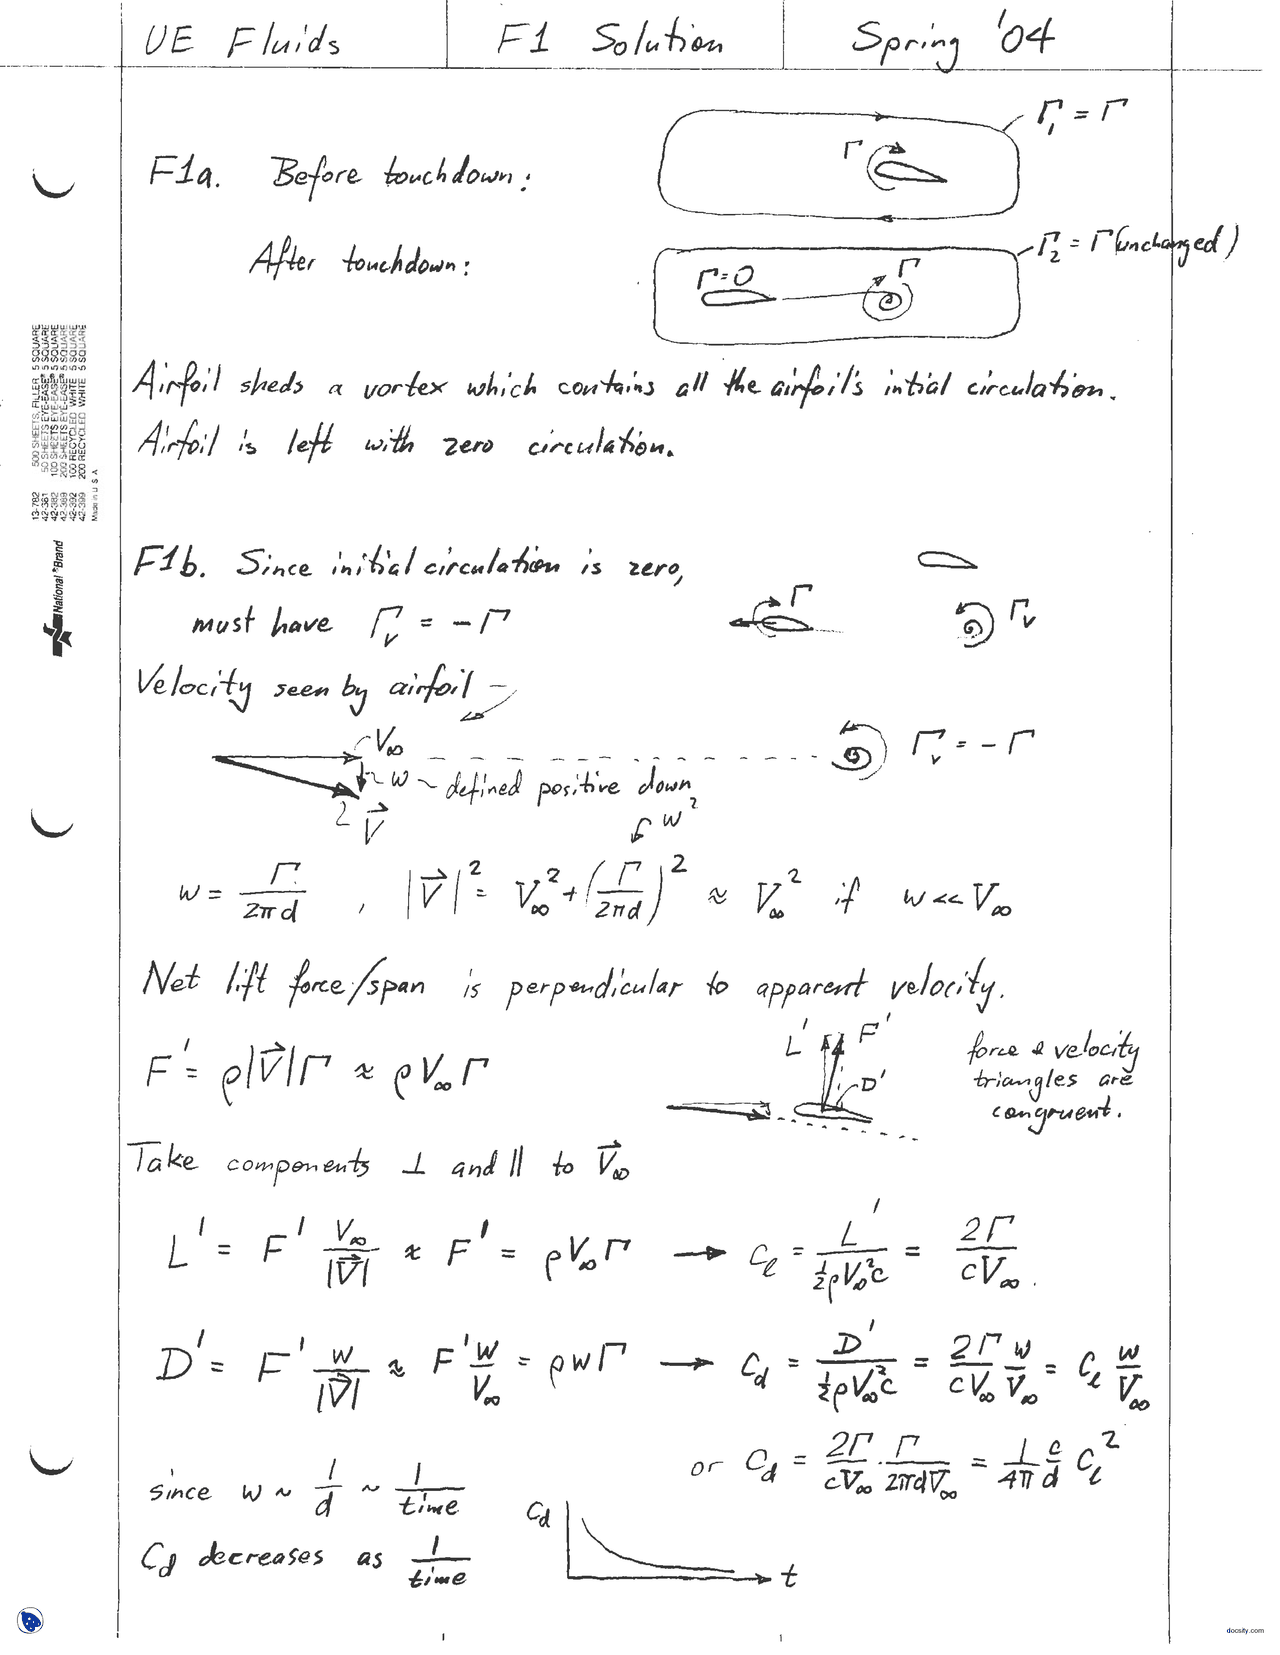 UE Fluids F1 Solution Spring '04
Γ₁ = Γ
F1a. Before touchdown:
Γ
After touchdown:
Γ₂ = Γ (unchanged)
Γ=0 Γ
Airfoil sheds a vortex which contains all the airfoil's intial circulation.
Airfoil is left with zero circulation.
13-782 500 SHEETS, FILLER 5 SQUARE
42-381 50 SHEETS EYE-EASE® 5 SQUARE
42-382 100 SHEETS EYE-EASE® 5 SQUARE
42-389 200 SHEETS EYE-EASE® 5 SQUARE
42-392 100 RECYCLED WHITE 5 SQUARE
42-399 200 RECYCLED WHITE 5 SQUARE
Made in U.S.A.
National® Brand
F1b. Since initial circulation is zero,
must have Γᵥ = -Γ
Γ Γᵥ
Velocity seen by airfoil
V∞ Γᵥ = -Γ
w ~ defined positive down
V⃗
w²
w = Γ/2πd , |V⃗|² = V∞² + (Γ/2πd)² ≈ V∞² if w << V∞
Net lift force/span is perpendicular to apparent velocity.
F' = ρ|V⃗|Γ ≈ ρV∞Γ
L' F' D'
force & velocity
triangles are
congruent.
Take components ⊥ and || to V⃗∞
L' = F' V∞/|V⃗| ≈ F' = ρV∞Γ → Cℓ = L'/½ρV∞²c = 2Γ/cV∞.
D' = F' w/|V⃗| ≈ F' w/V∞ = ρwΓ → Cd = D'/½ρV∞²c = 2Γ/cV∞ w/V∞ = Cℓ w/V∞
or Cd = 2Γ/cV∞ · Γ/2πdV∞ = 1/4π c/d Cℓ²
since w ~ 1/d ~ 1/time
Cd decreases as 1/time
Cd
t
docsity.com